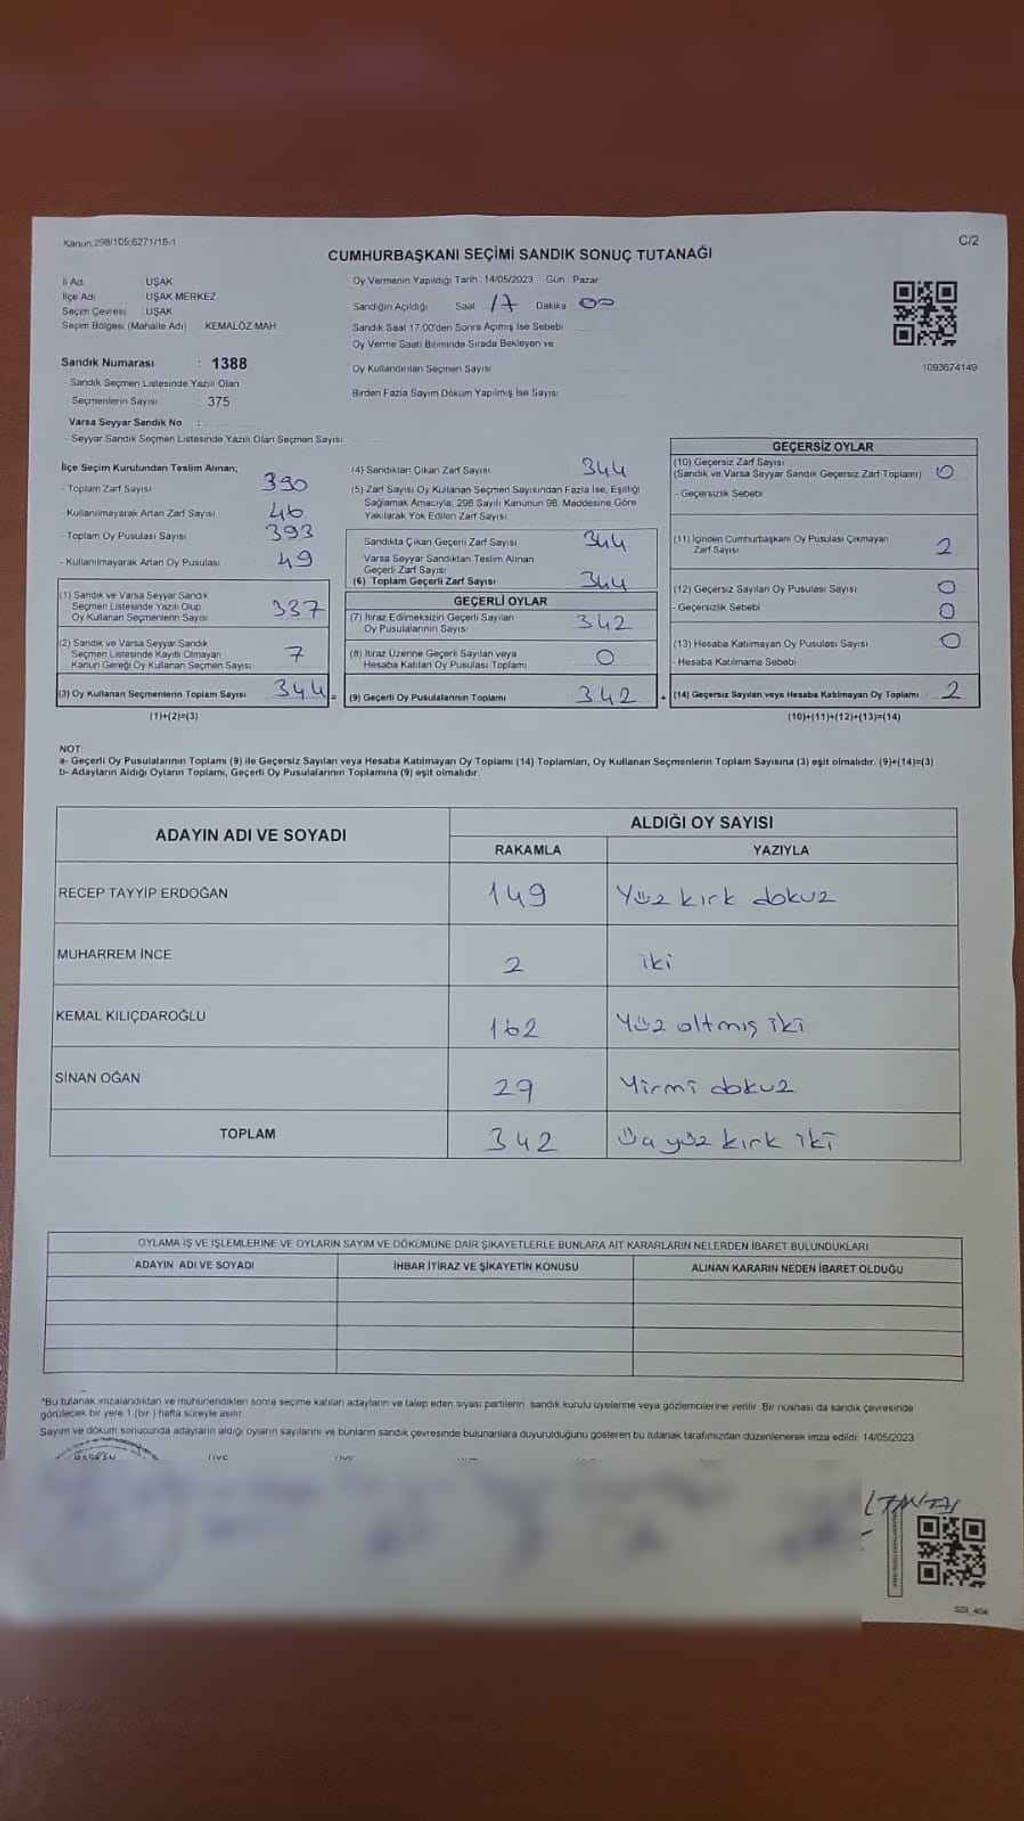 Kanun:298/105;6271/16-1
C/2
CUMHURBAŞKANI SEÇİMİ SANDIK SONUÇ TUTANAĞI
İl Adı : UŞAK
İlçe Adı : UŞAK MERKEZ
Seçim Çevresi : UŞAK
Seçim Bölgesi (Mahalle Adı) : KEMALÖZ MAH
Sandık Numarası : 1388
- Sandık Seçmen Listesinde Yazılı Olan
Seçmenlerin Sayısı : 375
Varsa Seyyar Sandık No :
- Seyyar Sandık Seçmen Listesinde Yazılı Olan Seçmen Sayısı
Oy Vermenin Yapıldığı Tarih : 14/05/2023 Gün : Pazar
Sandığın Açıldığı Saat 17 Dakika 00
Sandık Saat 17.00'den Sonra Açılmış İse Sebebi
Oy Verme Saati Bitiminde Sırada Bekleyen ve
Oy Kullandırılan Seçmen Sayısı
Birden Fazla Sayım Döküm Yapılmış İse Sayısı
1093674149
İlçe Seçim Kurulundan Teslim Alınan;
- Toplam Zarf Sayısı 390
- Kullanılmayarak Artan Zarf Sayısı 46
- Toplam Oy Pusulası Sayısı 393
- Kullanılmayarak Artan Oy Pusulası 49
(1) Sandık ve Varsa Seyyar Sandık
Seçmen Listesinde Yazılı Olup
Oy Kullanan Seçmenlerin Sayısı 337
(2) Sandık ve Varsa Seyyar Sandık
Seçmen Listesinde Kayıtlı Olmayan
Kanun Gereği Oy Kullanan Seçmen Sayısı 7
(3) Oy Kullanan Seçmenlerin Toplam Sayısı 344 =
(1)+(2)=(3)
(4) Sandıktan Çıkan Zarf Sayısı 344
(5) Zarf Sayısı Oy Kullanan Seçmen Sayısından Fazla İse, Eşitliği
Sağlamak Amacıyla, 298 Sayılı Kanunun 98. Maddesine Göre
Yakılarak Yok Edilen Zarf Sayısı
Sandıkta Çıkan Geçerli Zarf Sayısı 344
Varsa Seyyar Sandıktan Teslim Alınan
Geçerli Zarf Sayısı
(6) Toplam Geçerli Zarf Sayısı 344
GEÇERLİ OYLAR
(7) İtiraz Edilmeksizin Geçerli Sayılan
Oy Pusulalarının Sayısı 342
(8) İtiraz Üzerine Geçerli Sayılan veya
Hesaba Katılan Oy Pusulası Toplamı 0
(9) Geçerli Oy Pusulalarının Toplamı 342 +
GEÇERSİZ OYLAR
(10) Geçersiz Zarf Sayısı
(Sandık ve Varsa Seyyar Sandık Geçersiz Zarf Toplamı) 0
- Geçersizlik Sebebi
(11) İçinden Cumhurbaşkanı Oy Pusulası Çıkmayan
Zarf Sayısı 2
(12) Geçersiz Sayılan Oy Pusulası Sayısı 0
- Geçersizlik Sebebi 0
(13) Hesaba Katılmayan Oy Pusulası Sayısı 0
- Hesaba Katılmama Sebebi
(14) Geçersiz Sayılan veya Hesaba Katılmayan Oy Toplamı 2
(10)+(11)+(12)+(13)=(14)
NOT:
a- Geçerli Oy Pusulalarının Toplamı (9) ile Geçersiz Sayılan veya Hesaba Katılmayan Oy Toplamı (14) Toplamları, Oy Kullanan Seçmenlerin Toplam Sayısına (3) eşit olmalıdır. (9)+(14)=(3)
b- Adayların Aldığı Oyların Toplamı, Geçerli Oy Pusulalarının Toplamına (9) eşit olmalıdır.
ADAYIN ADI VE SOYADI
ALDIĞI OY SAYISI
RAKAMLA YAZIYLA
RECEP TAYYİP ERDOĞAN 149 Yüz kırk dokuz
MUHARREM İNCE 2 iki
KEMAL KILIÇDAROĞLU 162 Yüz altmış iki
SİNAN OĞAN 29 Yirmi dokuz
TOPLAM 342 Üç yüz kırk iki
OYLAMA İŞ VE İŞLEMLERİNE VE OYLARIN SAYIM VE DÖKÜMÜNE DAİR ŞİKAYETLERLE BUNLARA AİT KARARLARIN NELERDEN İBARET BULUNDUKLARI
ADAYIN ADI VE SOYADI İHBAR İTİRAZ VE ŞİKAYETİN KONUSU ALINAN KARARIN NEDEN İBARET OLDUĞU
*Bu tutanak imzalandıktan ve mühürlendikten sonra seçime katılan adayların ve talep eden siyasi partilerin sandık kurulu üyelerine veya gözlemcilerine verilir. Bir nüshası da sandık çevresinde
görülecek bir yere 1 (bir) hafta süreyle asılır.
Sayım ve döküm sonucunda adayların aldığı oyların sayılarını ve bunların sandık çevresinde bulunanlara duyurulduğunu gösteren bu tutanak tarafımızdan düzenlenerek imza edildi. 14/05/2023